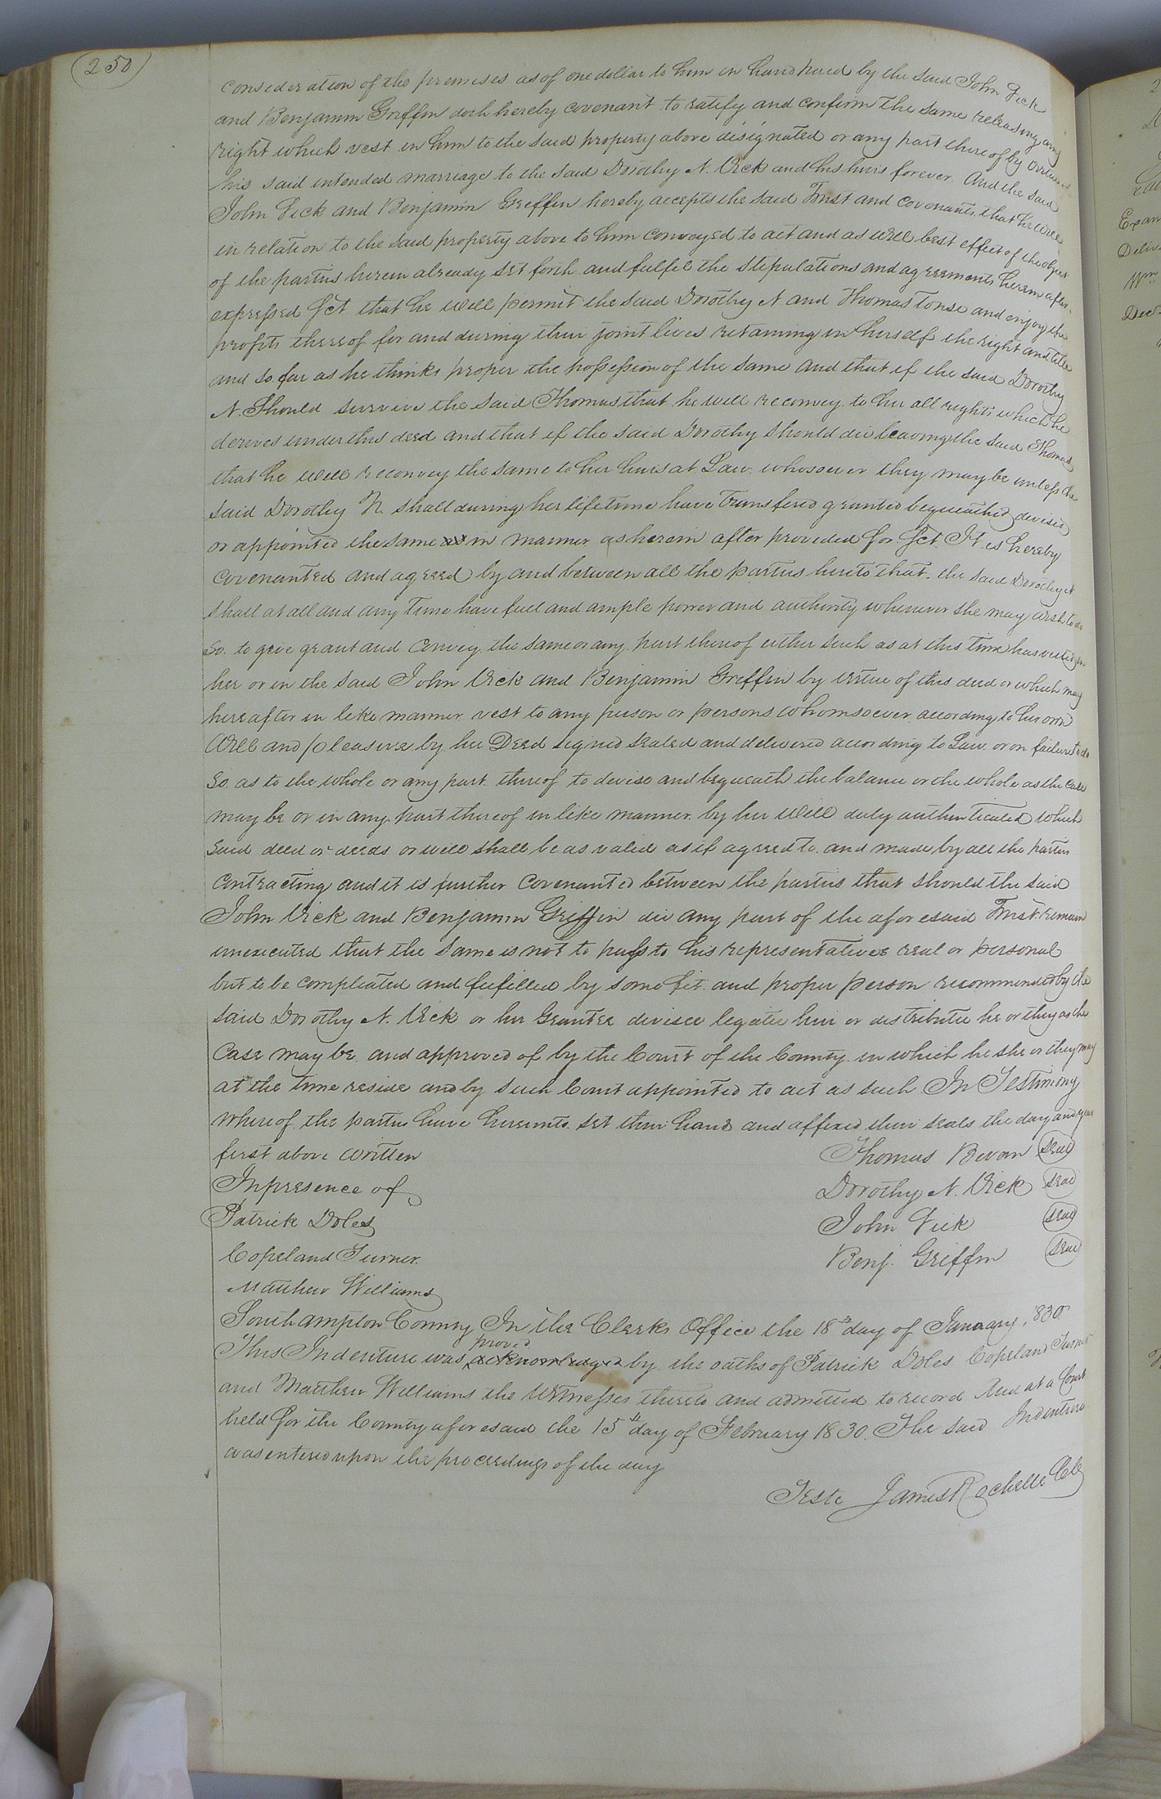 (250)
consideration of the premises as of one dollar to him in hand paid by the said John Vick
and Benjamin Griffin doth hereby covenant to ratify and confirm the same releasing any
right which vest in him to the said property above designated or any part thereof by virtue of
his said intended marriage to the said Dorothy N. Vick and his heirs forever. And the said
John Vick and Benjamin Griffin hereby accepts the said Trust and covenants that he will
in relation to the said property above to him conveyed to act and as will best effect of the object
of the parties herein already set forth and fulfil the stipulations and agreements herein after
expressed Yet that he will permit the said Dorothy N and Thomas to use and enjoy the
profits thereof for and during their joint lives retaining in herself the right and title
and so far as he thinks proper the possession of the same and that if the said Dorothy
N. Should survive the said Thomas that he will reconvey to her all rights which he
derives under this deed and that if the said Dorothy should die leaving the said Thomas
that he will reconvey the same to her heirs at Law whosoever they may be unless the
said Dorothy N. shall during her lifetime have transfered granted bequeathed devised
or appointed the same in manner as herein after provided for Yet It is hereby
covenanted and agreed by and between all the parties hereto that the said Dorothy N
shall at all and any time have full and ample power and authority whenever she may wish to do
so. to give grant and convey the same or any part thereof either such as at this time has vested in
her or in the said John Vick and Benjamin Griffin by virtue of this deed or which may
hereafter in like manner vest to any person or persons whomsoever according to her own
Will and pleasure by her Deed signed sealed and delivered according to Law or on failure to do
so. as to the whole or any part thereof to devise and bequeath the balance or the whole as the case
may be or in any part thereof in like manner by her Will duly authenticated which
said deed or deeds or will shall be as valid as if agreed to and made by all the parties
contracting and it is further covenanted between the parties that should the said
John Vick and Benjamin Griffin die any part of the aforesaid Trust remain
unexecuted that the same is not to pass to his representatives real or personal
but to be compleated and fulfilled by some fit and proper person recommended by the
said Dorothy N. Vick or her Grantee devisee legatee heir or distributee he or they as the
case may be and approved of by the Court of the County in which he she or they may
at the time reside and by such Court appointed to act as such In Testimony
whereof the parties have hereunto set their hand and affixed their seals the day and year
first above written Thomas Bevan (seal)
In presence of Dorothy N. Vick (seal)
Patrick Doles John Vick (seal)
Copeland Turner Benj. Griffin (seal)
Matthew Williams
Southampton County In the Clerks Office the 18th day of January 1830
This Indenture was proved acknowledged by the oaths of Patrick Doles Copeland Turner
and Matthew Williams the Witnesses thereto and admitted to record And at a Court
held for the County aforesaid the 15th day of February 1830. The said Indenture
was entered upon the proceedings of the day
Teste James Rochelle Clk